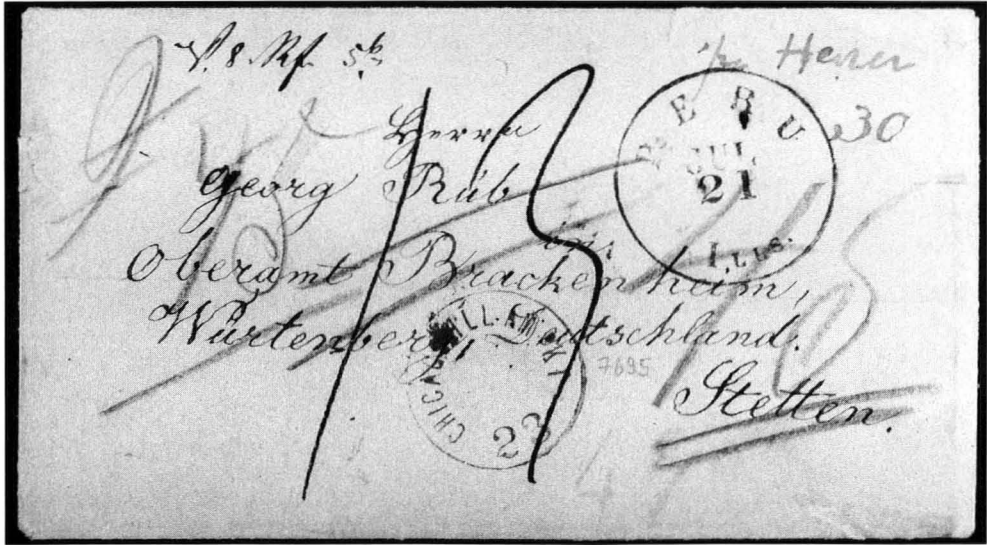 30
Herrn
Georg Rüb
in
Oberamt Brackenheim,
Würtenberg, Deutschland.
Stetten.
PERU
JUL
21
ILLS.
CHICAGO ILL. AM. PKT.
22
7695
13
15